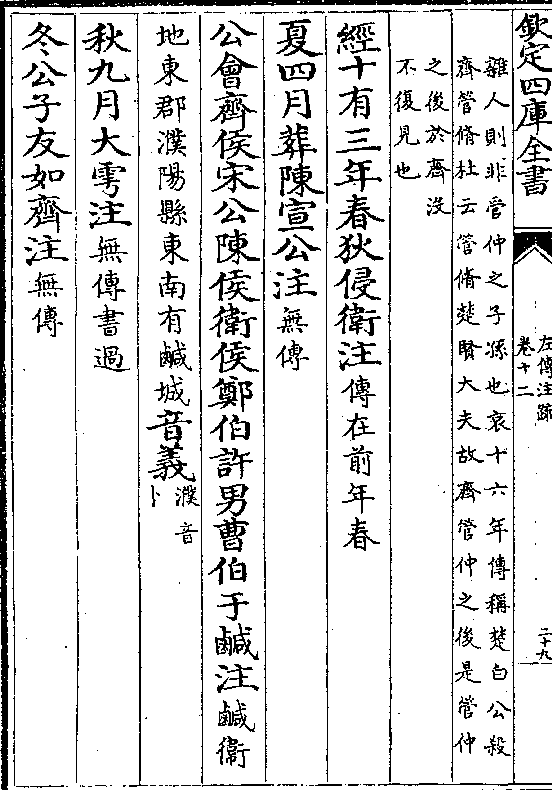 欽定四庫全書
左傳注疏
卷十二
二十九
雜人則非管仲之子孫也哀十六年傳稱楚白公殺
齊管脩杜云管脩楚賢大夫故齊管仲之後是管仲
之後於齊沒
不復見也
經十有三年春狄侵衛注傳在前年春
夏四月葬陳宣公注無傳
公會齊侯宋公陳侯衛侯鄭伯許男曹伯于鹹注鹹衛
地東郡濮陽縣東南有鹹城音義濮音
卜
秋九月大雩注無傳書過
冬公子友如齊注無傳